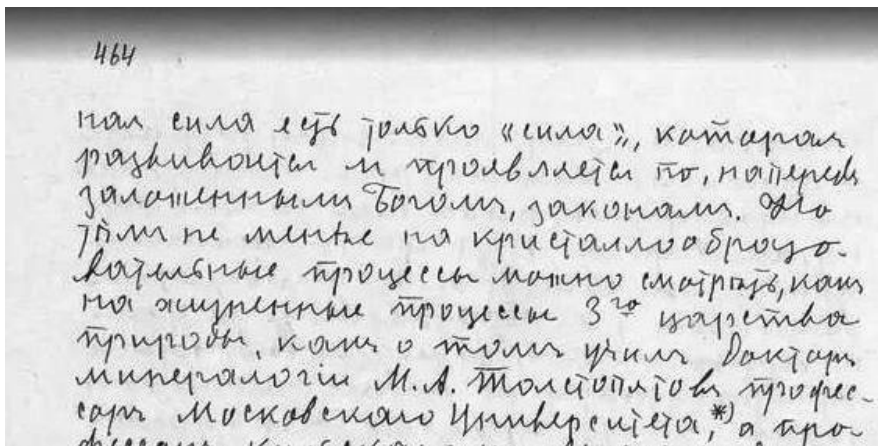 464
ная сила есть только «сила», которая
развивается и проявляется по, напередъ
заложеннымъ Богомъ, законамъ. Но
тѣмъ не менѣе на кристаллообразо-
вательные процессы можно смотрѣть, какъ
на жизненные процессы 3го царства
природы, какъ о томъ училъ Докторъ
минералогіи М.А. Толстопятовъ профес-
соръ Московскаго Университета,*) а про-